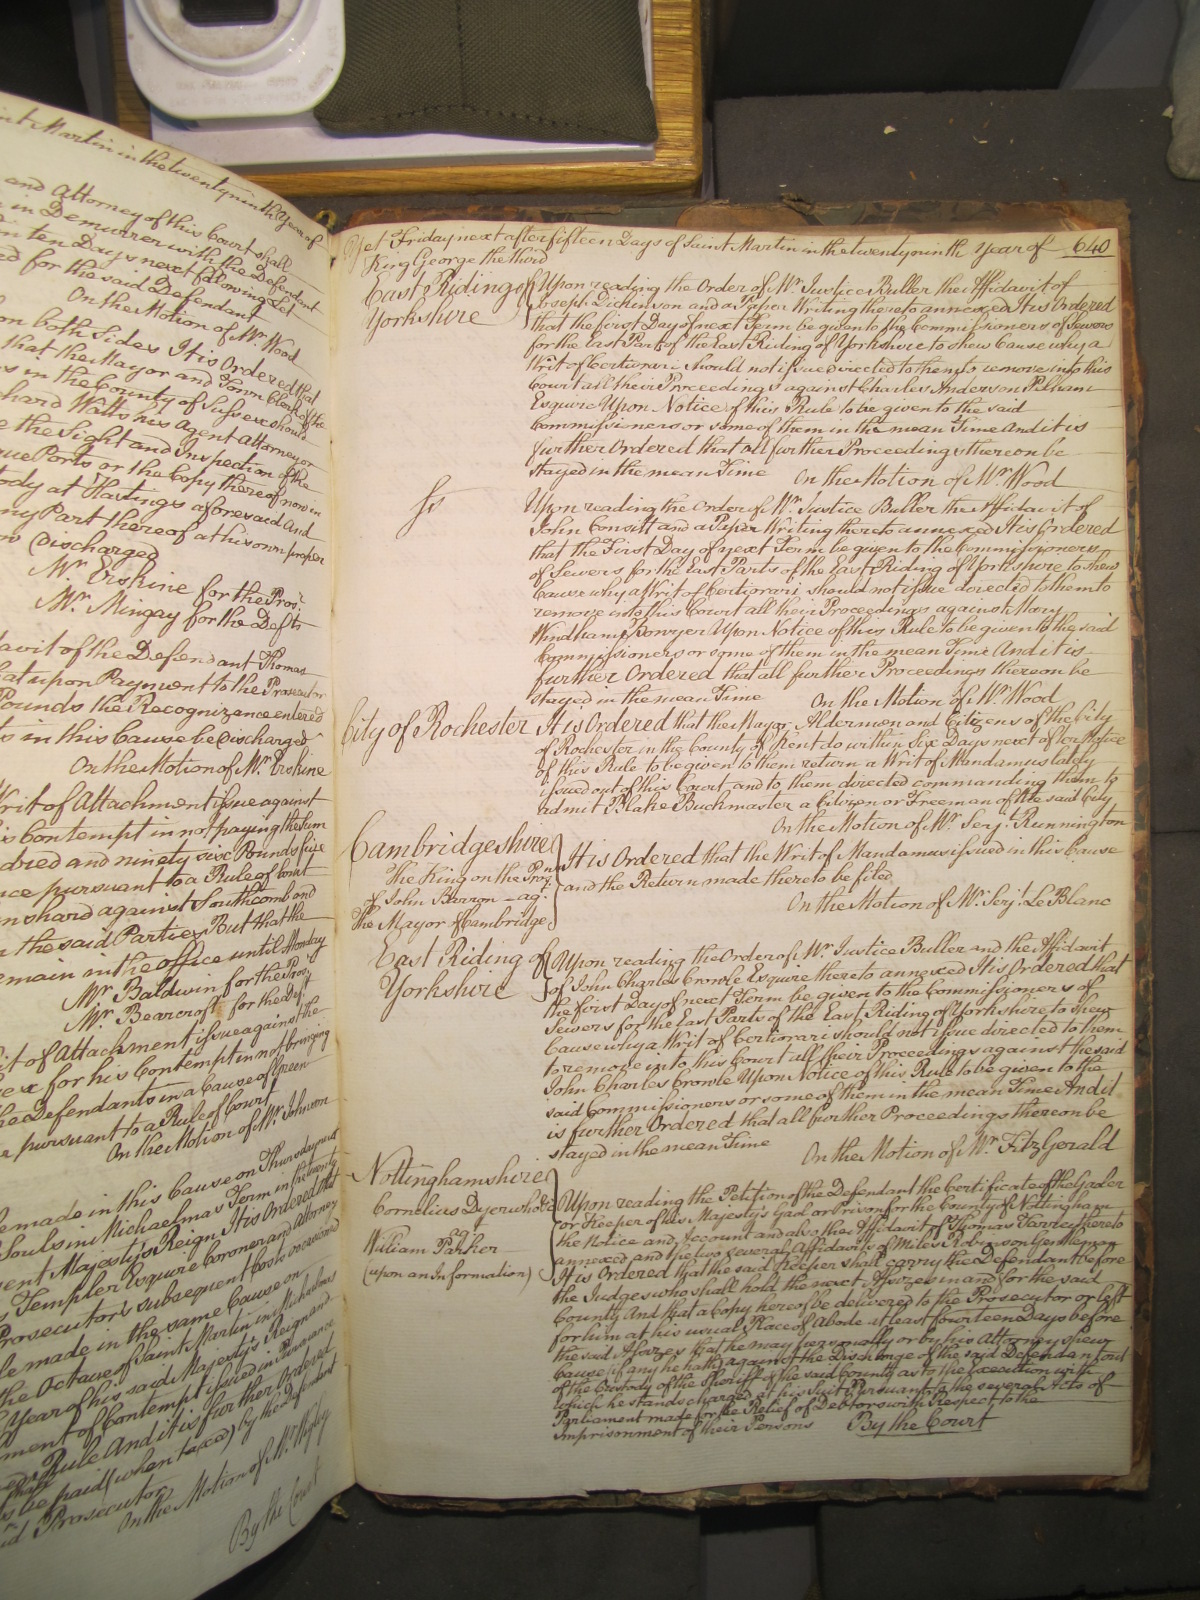 int Martin in the twenty ninth Year of
and Attorney of this Court shall
in Demurrer with the Defendant
ten Days next following Let
ed for the said Defendant
On the Motion of Mr. Wood
on both Sides It is Ordered that
that the Mayor and Town Clerk of the
s in the County of Sussex should
chard Watts his Agent Attorney or
e the Sight and Inspection of the
que Ports or the Copy thereof now in
ody at Hastings aforesaid And
ny Part thereof at his own proper
Discharged
Mr. Erskine for the Pros.
Mr. Mingay for the Defts
davit of the Defendant Thomas
at upon Payment to the Prosecutor
Pounds the Recognizance entered
s in this Cause be Discharged
On the Motion of Mr. Erskine
Writ of Attachment issue against
is Contempt in not paying the Sum
dred and ninety six Pounds five
nce pursuant to a Rule of Court
nshard against Southcomb and
n the said Parties But that the
emain in the office until Monday
Mr. Baldwin for the Pros.
Mr. Bearcroft for the Deft
it of Attachment issue against the
for his Contempt in not bringing
the Defendants in a Cause of Green
pursuant to a Rule of Court
On the Motion of Mr. Johnson
made in this Cause on Thursday next
Souls in Michaelmas Term in the twenty
sent Majesty's Reign It is Ordered that
Templer Esquire Coroner and Attorney
Prosecutor's subsequent Costs occasioned
le made in the same Cause on
the Octave of Saint Martin in Michaelmas
Year of his said Majesty's Reign and
ment of Contempt issued in Pursuance
Rule And it is further Ordered
be paid (when taxed) by the Defendant
Prosecutor
On the Motion of Mr.
By the Court
Yet Friday next after fifteen Days of Saint Martin in the twenty ninth Year of 640
King George the third
East Riding of Upon reading the Order of Mr. Justice Buller the Affidavit of
Yorkshire Joseph Dickinson and a Paper Writing thereto annexed It is Ordered
that the first Day of next Term be given to the Commissioners of Sewers
for the East Part of the East Riding of Yorkshire to shew Cause why a
Writ of Certiorari should not issue directed to them to remove into this
Court all their Proceedings against Charles Anderson Pelham
Esquire Upon Notice of this Rule to be given to the said
Commissioners or some of them in the mean Time And it is
further Ordered that all further Proceedings thereon be
stayed in the mean Time On the Motion of Mr. Wood
Upon reading the Order of Mr. Justice Buller the Affidavit of
John Consitt and a Paper Writing thereto annexed It is Ordered
that the First Day of next Term be given to the Commissioners
of Sewers for the East Parts of the East Riding of Yorkshire to shew
Cause why a Writ of Certiorari should not issue directed to them to
remove into this Court all their Proceedings against Mary
Windham Bowyer Upon Notice of this Rule to be given to the said
Commissioners or some of them in the mean Time And it is
further Ordered that all further Proceedings thereon be
stayed in the mean Time On the Motion of Mr. Wood
City of Rochester It is Ordered that the Mayor Aldermen and Citizens of the City
of Rochester in the County of Kent do within Six Days next after Notice
of this Rule to be given to them return a Writ of Mandamus lately
issued out of this Court and to them directed commanding them to
admit Blake Buckmaster a Citizen or Freeman of the said City
On the Motion of Mr. Serjt. Runnington
Cambridgeshire It is Ordered that the Writ of Mandamus issued in this Cause
The King on the Pros. and the Return made thereto be filed
of John Barron ag.t
The Mayor of Cambridge On the Motion of Mr. Serjt. Le Blanc
East Riding of Upon reading the Order of Mr. Justice Buller and the Affidavit
Yorkshire of John Charles Crowle Esquire thereto annexed It is Ordered that
the First Day of next Term be given to the Commissioners of
Sewers for the East Parts of the East Riding of Yorkshire to shew
Cause why a Writ of Certiorari should not issue directed to them
to remove into this Court all their Proceedings against the said
John Charles Crowle Upon Notice of this Rule to be given to the
said Commissioners or some of them in the mean Time And it
is further Ordered that all further Proceedings thereon be
stayed in the mean Time On the Motion of Mr. FitzGerald
Nottinghamshire Upon reading the Petition of the Defendant the Certificate of the Gaoler
Cornelias Dyer who &c or Keeper of his Majesty's Gaol or Prison for the County of Nottingham
ag.t the Notice and Account and also the Affidavit of Thomas Varrie thereto
William Parker annexed and the two several Affidavits of Miles Robinson Gentleman
(upon an Information) It is Ordered that the said Keeper shall carry the Defendant before
the Judges who shall hold the next Assizes in and for the said
County And that a Copy hereof be delivered to the Prosecutor or left
for him at his usual Place of Abode at least fourteen Days before
the said Assizes that he may personally or by his Attorney shew
Cause if any he hath against the Discharge of the said Defendant out
of the Custody of the Sheriff of the said County as to the Execution with
which he stands charged at his Suit Pursuant to the several Acts of
Parliament made for the Relief of Debtors with Respect to the
Imprisonment of their Persons By the Court